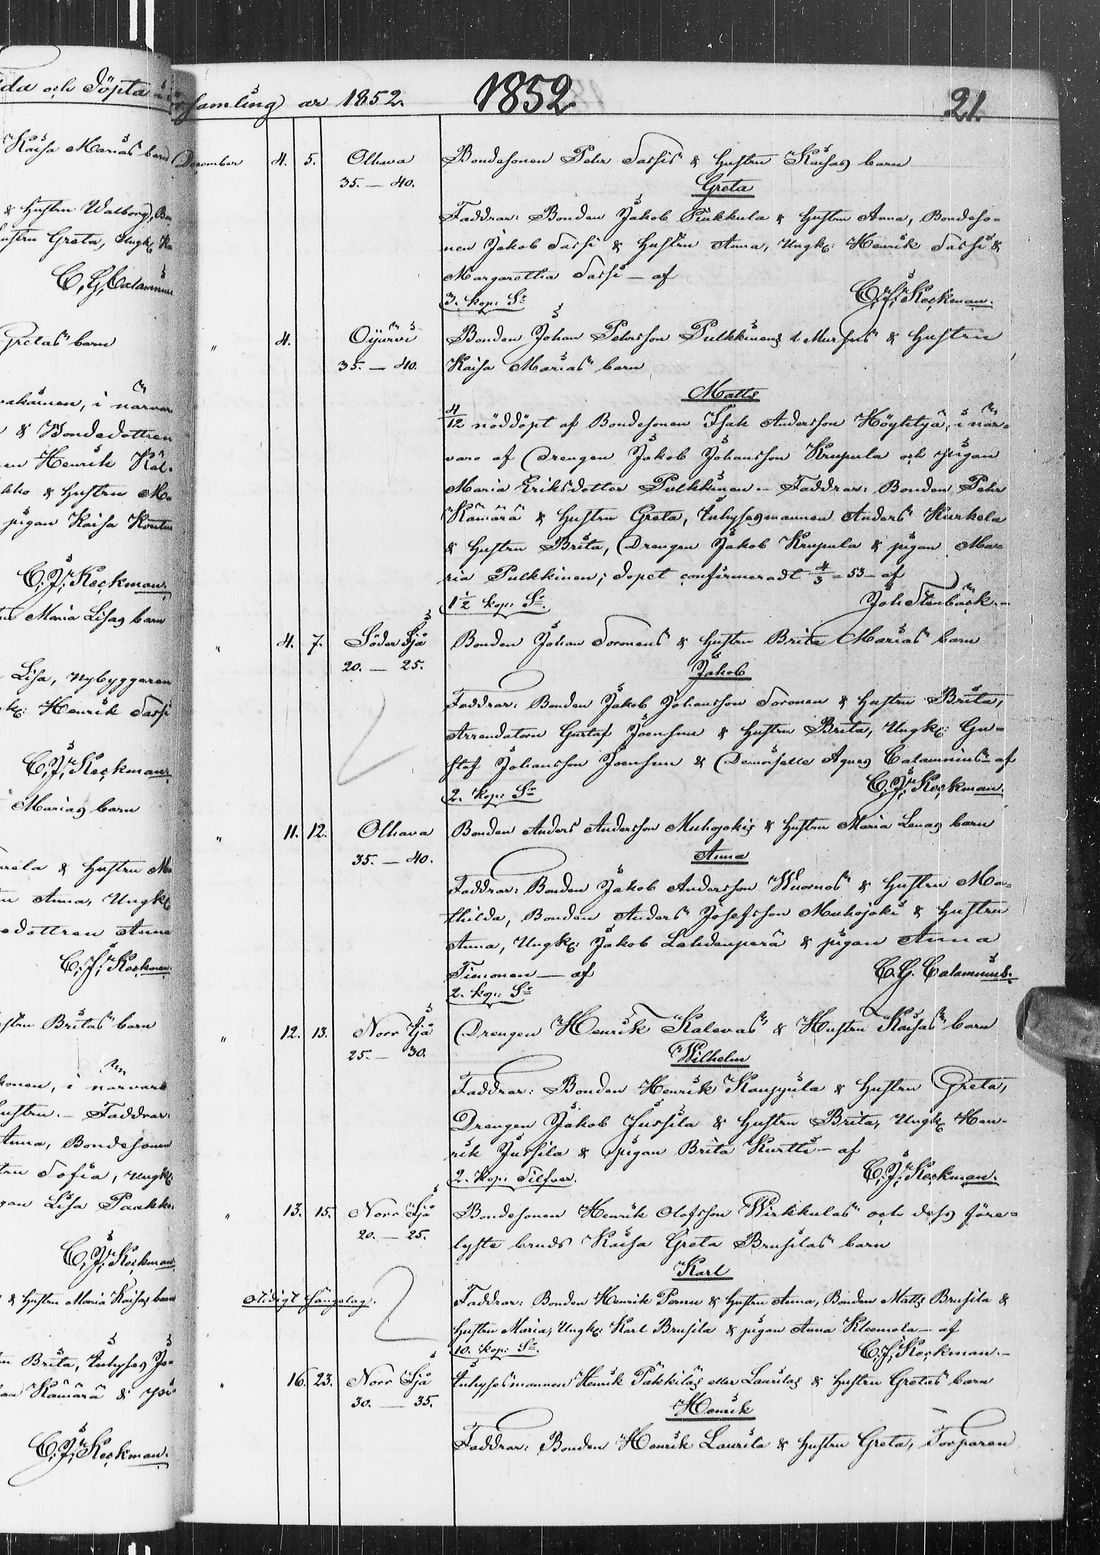 da och Döpta i
Kaisa Marias barn
& Hustru Walborg, Bon
Hustru Greta, Ungk.
C. G. Calamnius
Gretas barn
i närvaro
& Bondedottren
Henrik
& Hustru
pigan Kaisa
C. J. Keckman.
Maria Lisas barn
Lisa, nybyggaren
Henrik Tassi
C. J. Keckman.
Marias barn
& Hustru
Anna, Ungk.
dottren Anna
C. J. Keckman.
Hustru Britas barn
sonen, i närvaro
Hustru. — Faddrar:
Anna, Bondesonen
Sofia, Ungk.
pigan Lisa
C. J. Keckman
& Hustru Maria Kaisas barn
Brita, Inhyses
Kämärä & pi
C. J. Keckman.
samling år 1852.
1852
21.
December 4. 5. Olhava Bondesonen Petr Tassis & Hustru Kaisas barn
35. — 40. Greta
Faddrar: Bonden Jakob Pukkula & Hustru Anna, Bondeso-
nen Jakob Tassi & Hustru Anna, Ungk: Henrik Tassi &
Margaretha Tassi — af
3. kop: Sr C. J. Keckman.
" 4. Oijärvi Bonden Johan Petersson Pulkkinens & Hustru
35. — 40. Kaisa Marias barn
Matts
4/12 nöddöpt af Bondesonen Isak Andersson Höyhtyä, i när-
varo af Drengen Jakob Johansson Krupula och pigan
Maria Eriksdotter Pulkkinen. — Faddrar: Bonden Petr
Kämärä & Hustru Greta, Inhysesmannen Anders Kurkela
& Hustru Brita, Drengen Jakob Krupula & pigan Ma-
ria Pulkkinen; dopet confirmeradt 4/3 — 53 — af
1 1/2 kop: Sr Joh Stenbäck. —
" 4. 7. Söder Ijå Bonden Johan Soronens & Hustru Brita Marias barn
20. — 25. Jakob
Faddrar: Bonden Jakob Johansson Soronen & Hustru Brita,
Arrendatorn Gustaf Joensuu & Hustru Brita, Ungk: Gu-
staf Johansson Joensuu & Demoiselle Agnes Calamnius — af
2. kop: Sr C. J. Keckman.
" 11. 12. Olhava Bonden Anders Andersson Muhojokis & Hustru Maria Lenas barn
35. — 40. Anna
Faddrar: Bonden Jakob Andersson Wuornos & Hustru Ma-
thilda, Bonden Anders Josefsson Muhojoki & Hustru
Anna, Ungk: Jakob Lahdenperä & pigan Anna
Timonen — af C. G. Calamnius.
2. kop: Sr
" 12. 13. Norr Ijå Drengen Henrik Kalevas & Hustru Kaisas barn
25. — 30. Wilhelm
Faddrar: Bonden Henrik Kauppila & Hustru Greta,
Drengen Jakob Jussila & Hustru Brita, Ungk: Hen-
rik Jussila & pigan Brita Kurtti — af
2. Kop: Silfver. C. J. Keckman.
" 13. 15. Norr Ijå Bondesonen Henrik Olofsson Wirkkulas och dess före-
20. — 25. lyste bruds Kaisa Greta Brusilas barn
Karl
otidigt sänglag. Faddrar: Bonden Henrik Pernu & Hustru Anna, Bonden Matts Brusila &
Hustru Maria, Ungk: Karl Brusila & pigan Anna Kleemola — af
10. kop: Sr C. J. Keckman. —
" 16. 23. Norr Ijå Inhysesmannen Henrik Pakkilas eller Laurilas & Hustru Gretas barn
30. — 35. Henrik
Faddrar: Bonden Henrik Laurila & Hustru Greta, Torparen